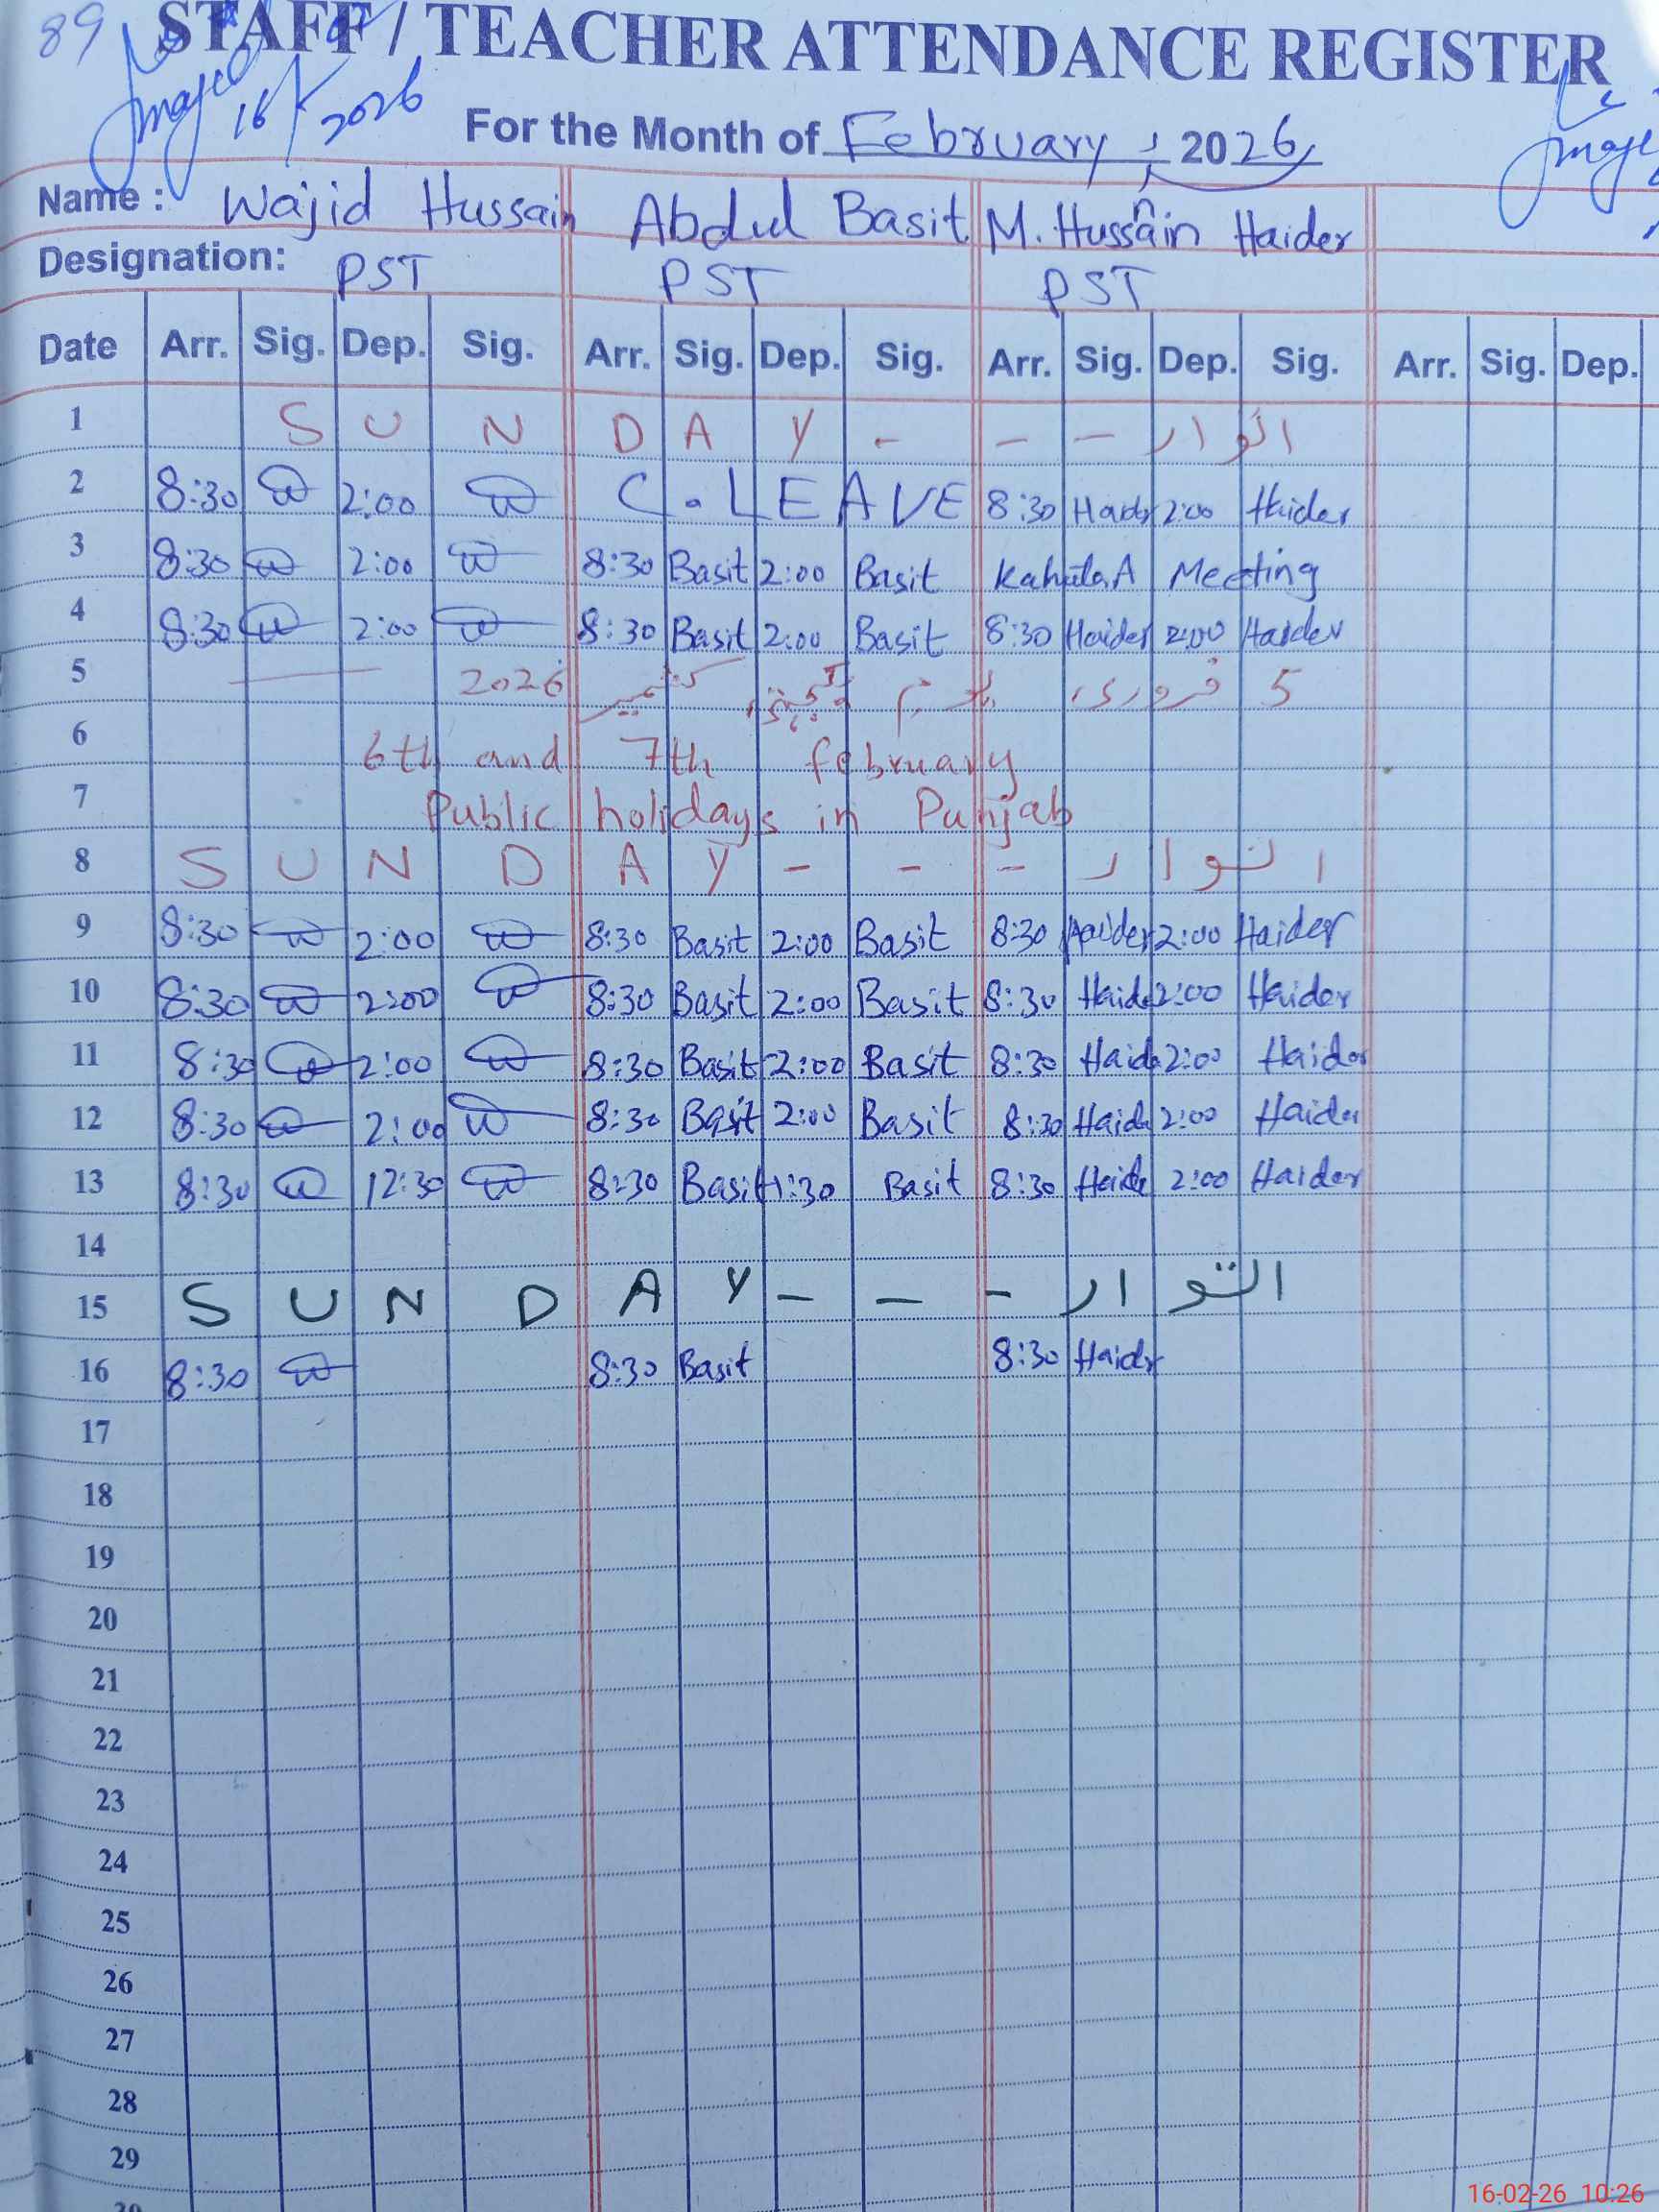 89 STAFF / TEACHER ATTENDANCE REGISTER
16/ 2026
For the Month of February, 2026
Name : Wajid Hussain Abdul Basit M. Hussain Haider
Designation: PST PST PST
Date Arr. Sig. Dep. Sig. Arr. Sig. Dep. Sig. Arr. Sig. Dep. Sig. Arr. Sig. Dep.
1 S U N D A Y - - - اتوار
2 8:30 2:00 C. LEAVE 8:30 Haider 2:00 Haider
3 8:30 2:00 8:30 Basit 2:00 Basit Meeting
4 8:30 2:00 8:30 Basit 2:00 Basit 8:30 Haider 2:00 Haider
5 5 فروری، یوم کشمیر 2026
6 6th and 7th february
7 Public holidays in Punjab
8 S U N D A Y - - - اتوار
9 8:30 2:00 8:30 Basit 2:00 Basit 8:30 Haider 2:00 Haider
10 8:30 2:00 8:30 Basit 2:00 Basit 8:30 Haide 2:00 Haider
11 8:30 2:00 8:30 Basit 2:00 Basit 8:30 Haide 2:00 Haider
12 8:30 2:00 8:30 Basit 2:00 Basit 8:30 Haide 2:00 Haider
13 8:30 12:30 8:30 Basit 1:30 Basit 8:30 Haide 2:00 Haider
14
15 S U N D A Y - - - اتوار
16 8:30 8:30 Basit 8:30 Haidr
17
18
19
20
21
22
23
24
25
26
27
28
29
30
16-02-26 10:26